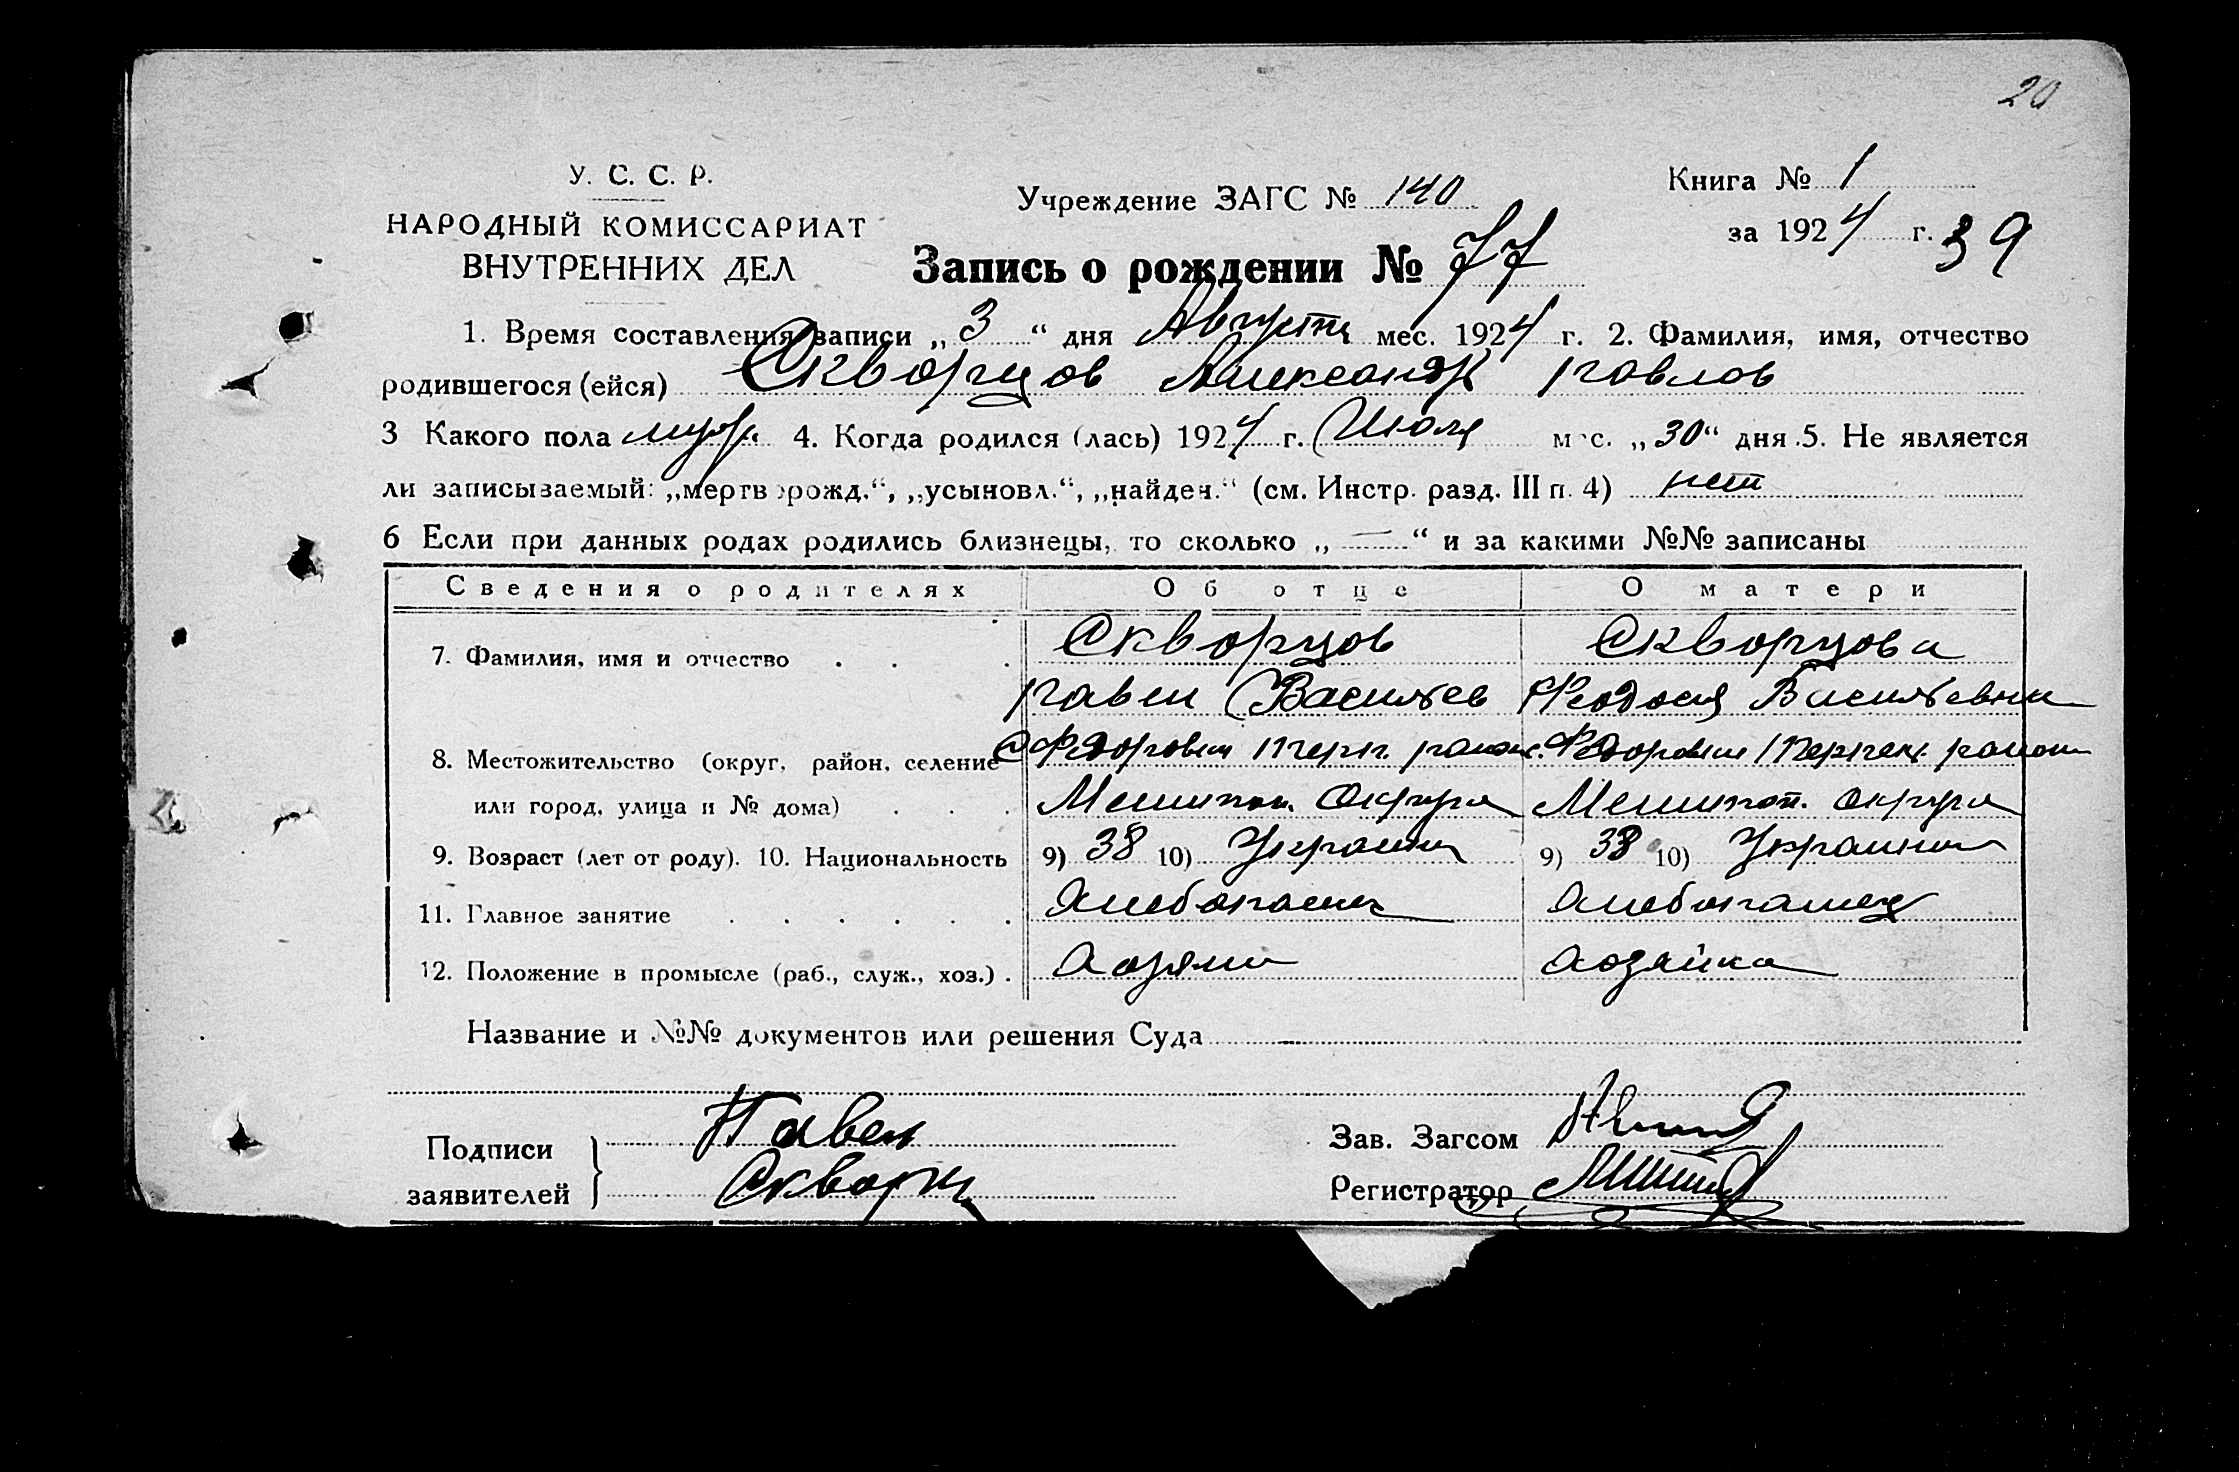 20
У. С. С. Р.
НАРОДНЫЙ КОМИССАРИАТ
ВНУТРЕННИХ ДЕЛ
Учреждение ЗАГС № 140
Книга № 1
за 1924 г. 39
Запись о рождении № 77
1. Время составления записи „ 3 “ дня Августа мес. 1924 г. 2. Фамилия, имя, отчество
родившегося (ейся) Скворцов Александр Павлов
3 Какого пола муж. 4. Когда родился (лась) 1924 г. Июля мес. „30“ дня .5. Не является
ли записываемый: „мертворожд.“, „усыновл.“, „найден.“ (см. Инстр. разд. III п. 4) нет
6 Если при данных родах родились близнецы, то сколько „ — “ и за какими №№ записаны
Сведения о родителях Об отце О матери
7. Фамилия, имя и отчество Скворцов Скворцова
Павел Васильев Феодосия Васильевна
8. Местожительство (округ, район, селение с Федоровки район. Федоровки район
или город, улица и № дома) Мелитоп. Округа Мелитоп. округа
9. Возраст (лет от роду). 10. Национальность 9) 38 10) Украинец 9) 38 10) Украинка
11. Главное занятие Хлебопашец Хлебопашец
12. Положение в промысле (раб., служ., хоз.) . Хозяин Хозяйка
Название и №№ документов или решения Суда
Подписи
заявителей
Павел
Скворц
Зав. Загсом
Регистратор